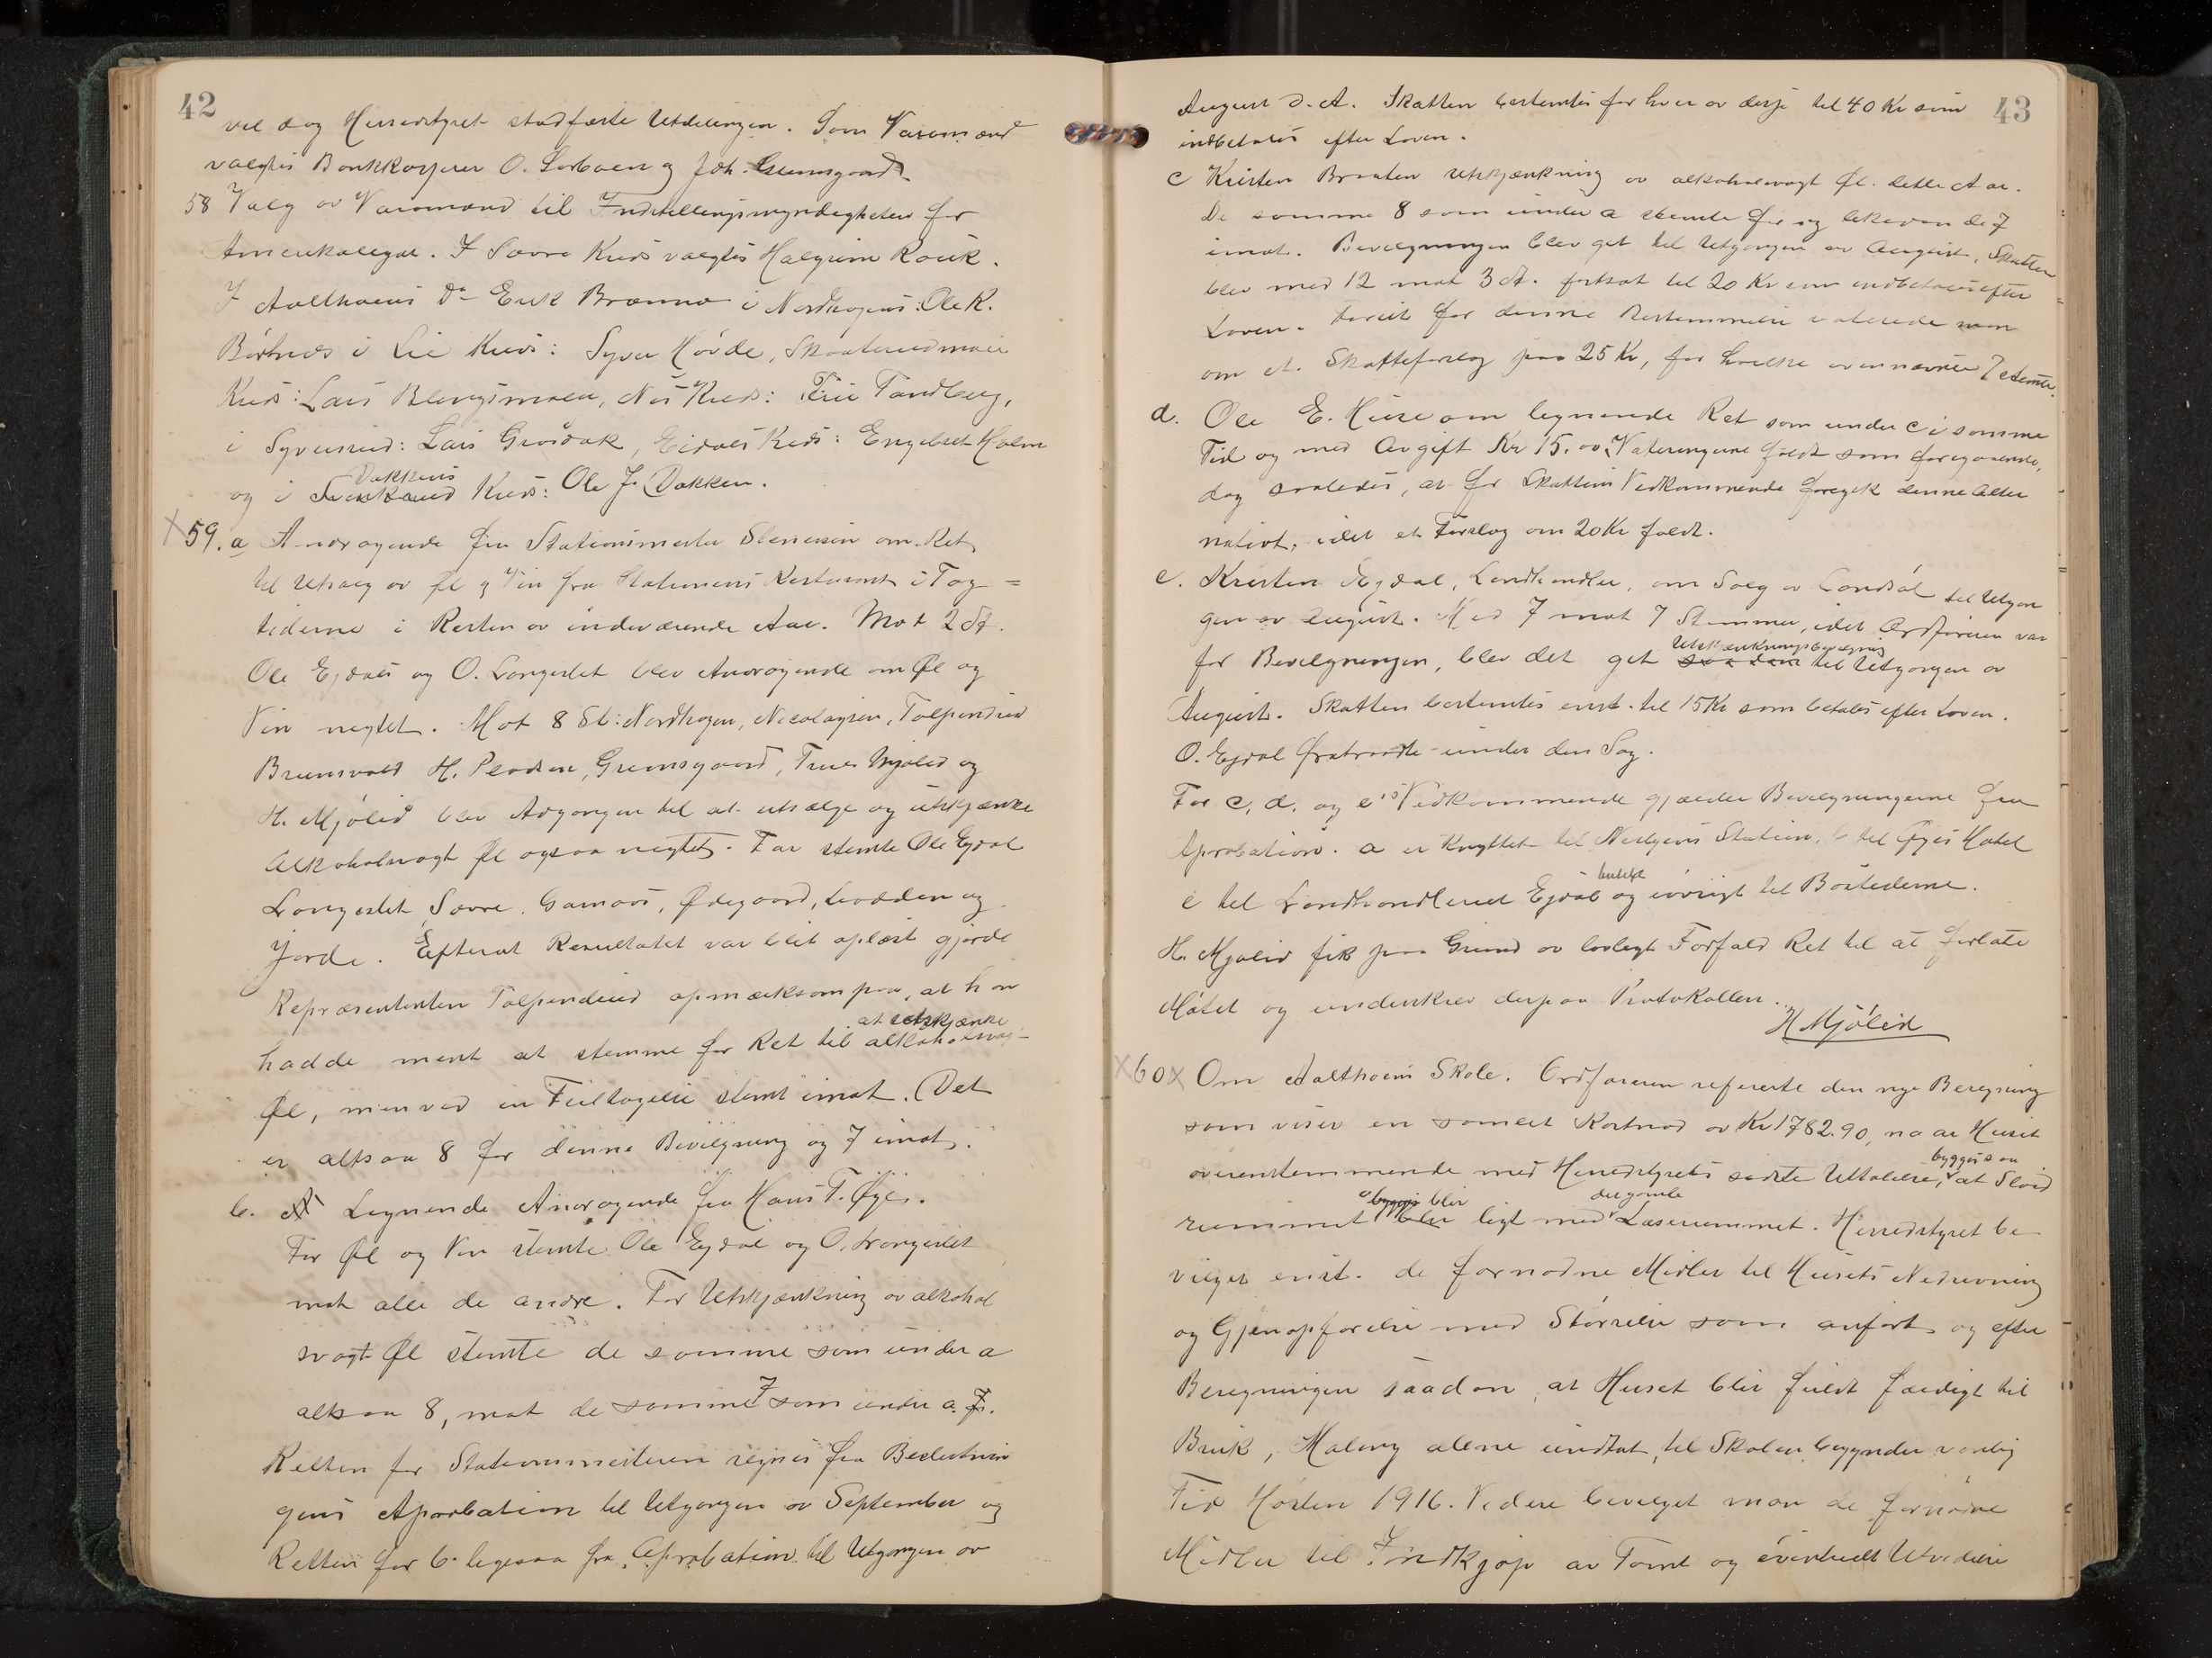 42
vel dog Herredstyret stadfæste Utdelingen. Som Varamænd
valgtes Bankkasserer O. Sorbøen og Joh. Grimsgaard.
58 Valg av Varamænd til Indstillingsmyndigheten for
Amerikalegat. I Sævre Kreds valgtes Halgrim Rouk.
I Aalthoeni Do Erik Brænno i Nordhagens: Ole K.
Börtnes i Lie Kreds: Syver Hövde, Skaaterudmoen
Kreds: Lars Blengsmoen, Nes Kreds: Tandberg,
i Syverud: Lars Grøsdok, Eidals Kreds: Engebret Holm
Dokkens
og i Kreds: Ole J. Dokken.
59. a Andragende fra Stationsmester Stenersen om Ret
til Utsalg av Øl og Vin fra Stationens Restaurant i Tog=
tiderne i Resten av indeværende Aar. Mot 2 St.
Ole Ejdal og O. Longeslet blev Andragende om Øl og
Vin negtet. Mot 8 St: Nordhagen, Nicolaysen, Tolpinrud
Brunsvold H. Pladsen, Grimsgaard, Mjølid og
H. Mjölid blev Adgangen til at utsælge og utskjænke
Alkoholsvagt Øl ogsaa negtet. For stemte Ole Ejdal
Longeslet, Sævre, Gamaas, Ødegaard, Lrodden og
Jorde. Efterat Resultatet var blit oplæst gjorde
Repræsentanten Tolpinrud opmærksom paa, at han
at utskjænke
hadde ment at stemme for Ret til alkoholsvag-
Øl, men ved en Feiltagelse stemt imot. Det
er altsaa 8 for denne Bevilgning og 7 imot.
b. Lignende Andragende fra Hans T. Øyes.
For Øl og Vin stemte Ole Ejdal og O. Longeslet
mot alle de andre. For Utskjænkning av alkohol
svagt Øl stemte de samme som under a
altsaa 8, mot de samme 7 som under a.
Retten for Stationsmesteren regnes fra Beslutnin
gens Aprobation til Utgangen av September og
Retten for b. ligesaa fra Aprobation til Utgangen av
43
August d. A. Skatten bestemtes for hver av disse til 40 Kr som
indbetales efter Loven.
c Kristen Braaten utskjænkning av alkoholsvagt Øl. dette Aar.
De samme 8 som under a stemte for og likesaa de 7
imot. Bevilgningen blev git til Utgangen av August, Skatten
blev med 12 mot 3 St. fastsat til 20 Kr som indbetales efter
Loven. Forut for denne Bestemmelse voterede man
om et Skatteforslag paa 25 Kr, for hvilke ovennævnte 7 stemte.
d. Ole E. Huse om lignende Ret som under c i samme
Tid og med Avgift Kr 15.00. Voteringerne faldt som foregaaende,
dog saaledes, at for Skattens Vedkommende foregik denne alter
nativt, idet et Forslag om 20 Kr faldt.
e. Kristen Ejdal, Landhandler, om Salg av Landsøl til Utgan
gen av August. Med 7 mot 7 Stemmer, idet Ordføreren var
Utskjænkningsbevilgning
for Bevilgningen, blev det git til Utgangen av
August. Skatten bestemtes enst. til 15 Kr som betales efter Loven.
O. Ejdal fratraadte under den Sag.
For c, d. og e's Vedkommende gjælder Bevilgningerne fra
Aprobation. a er knyttet til Nesbyens Station, b til Øyes Hotel
butikk
e til Landhandleriet Ejdal og iövrigt til Bostederne.
H. Mjølid fik paa Grund av lovlegt Forfald Ret til at forlate
Møtet og underskrev derpaa Protokollen.
H Mjölid
60 Om Aalthoens Skole. Ordføreren refererte den nye Beregning
som viser en samlet Kostnad av Kr 1782.90, naar Huset
bygges saa
overenstemmende med Herredstyrets sidste Uttalelse, at Sløid
bygges blir det gamle
rummet blir ligt med Læserummet. Herredstyret be
vilget enst. de fornødne Midler til Husets Nedrivning
og Gjenopførelse med Størrelse som anført og efter
Beregningen saadan, at Huset blir fuldt færdigt til
Bruk, Maling alene undtat, til Skolen begynder vanlig
Tid Hösten 1916. Videre bevilget man de fornødne
Midler til Indkjøp av Tomt og eventuelt Utvidelse